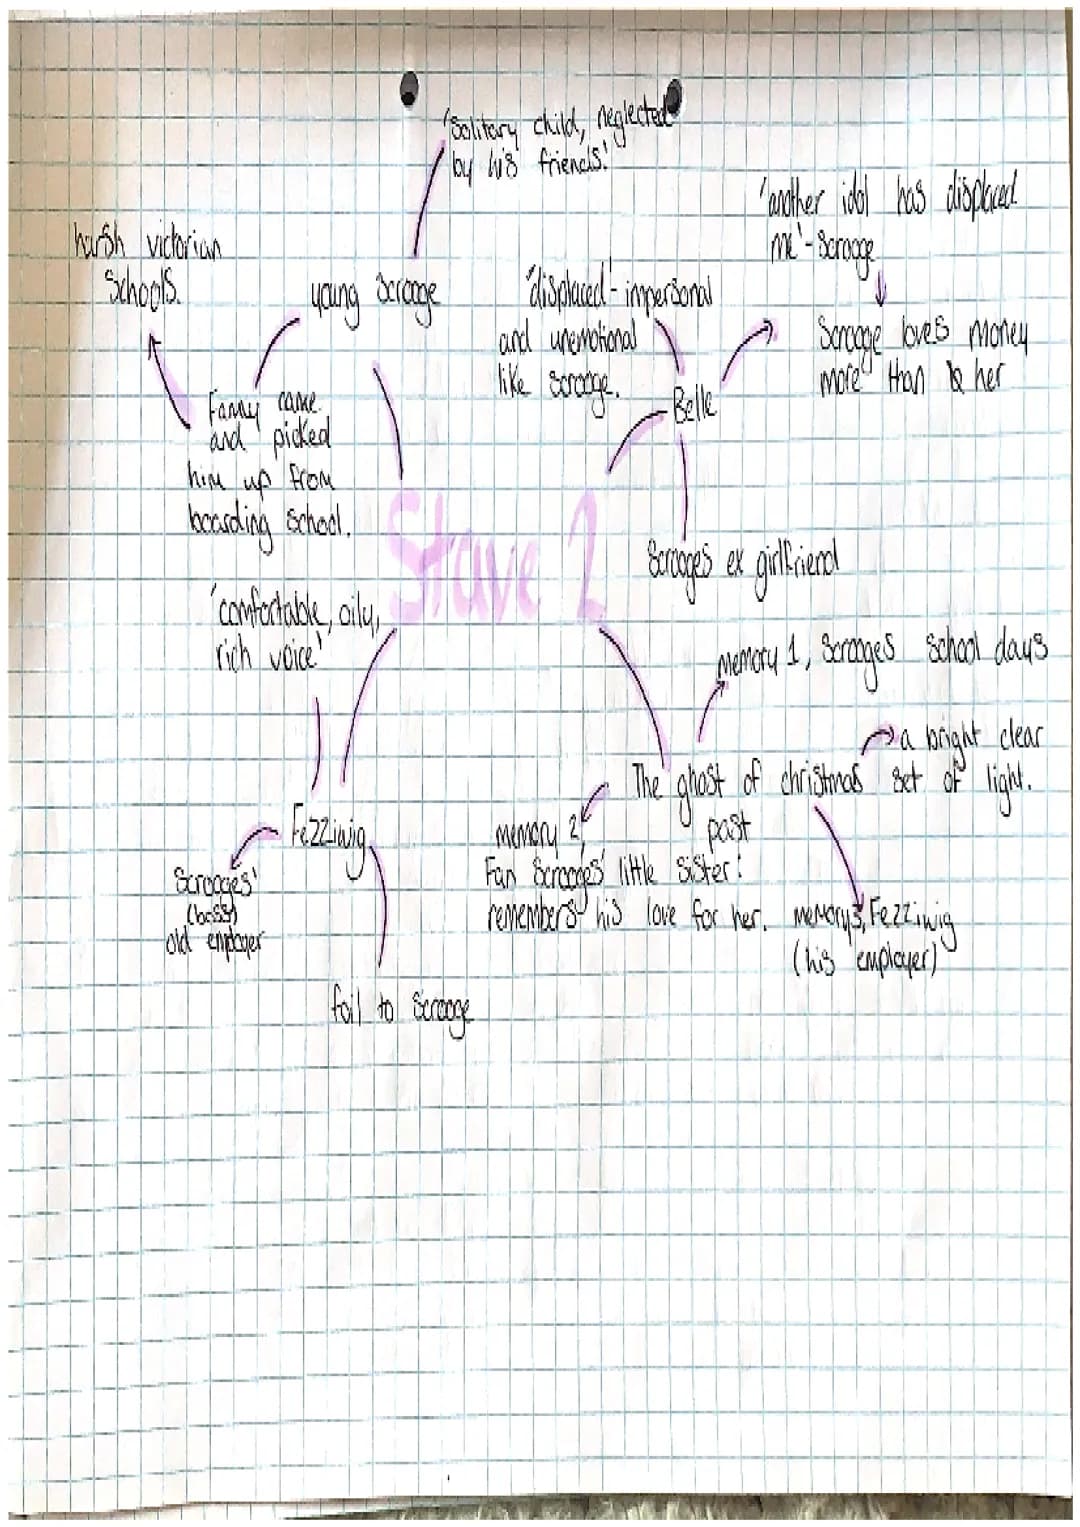 'Solitary child, neglected
by his friends.'
harsh victorian
Schools.
young Scrooge
Fanny came
and picked
him up from
boarding school.
'another idol has displaced
me' - Scrooge
Scrooge loves money
more than her
'displaced' - impersonal
and unemotional
like scrooge.
Belle
Scrooges ex girlfriend
Stave 2
'comfortable, oily,
rich voice'
Fezziwig
Scrooges'
(boss)
old employer
foil to Scrooge
memory 1, Scrooges School days
a bright clear
The ghost of christmas jet of light.
past
memory 2,
Fan Scrooges' little sister:
remembers his love for her.
memory3, Fezziwig
(his employer)